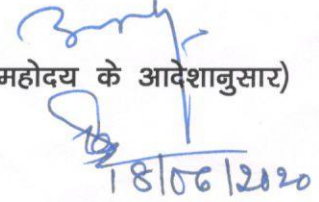 महोदय के आदेशानुसार)
18/06/2020